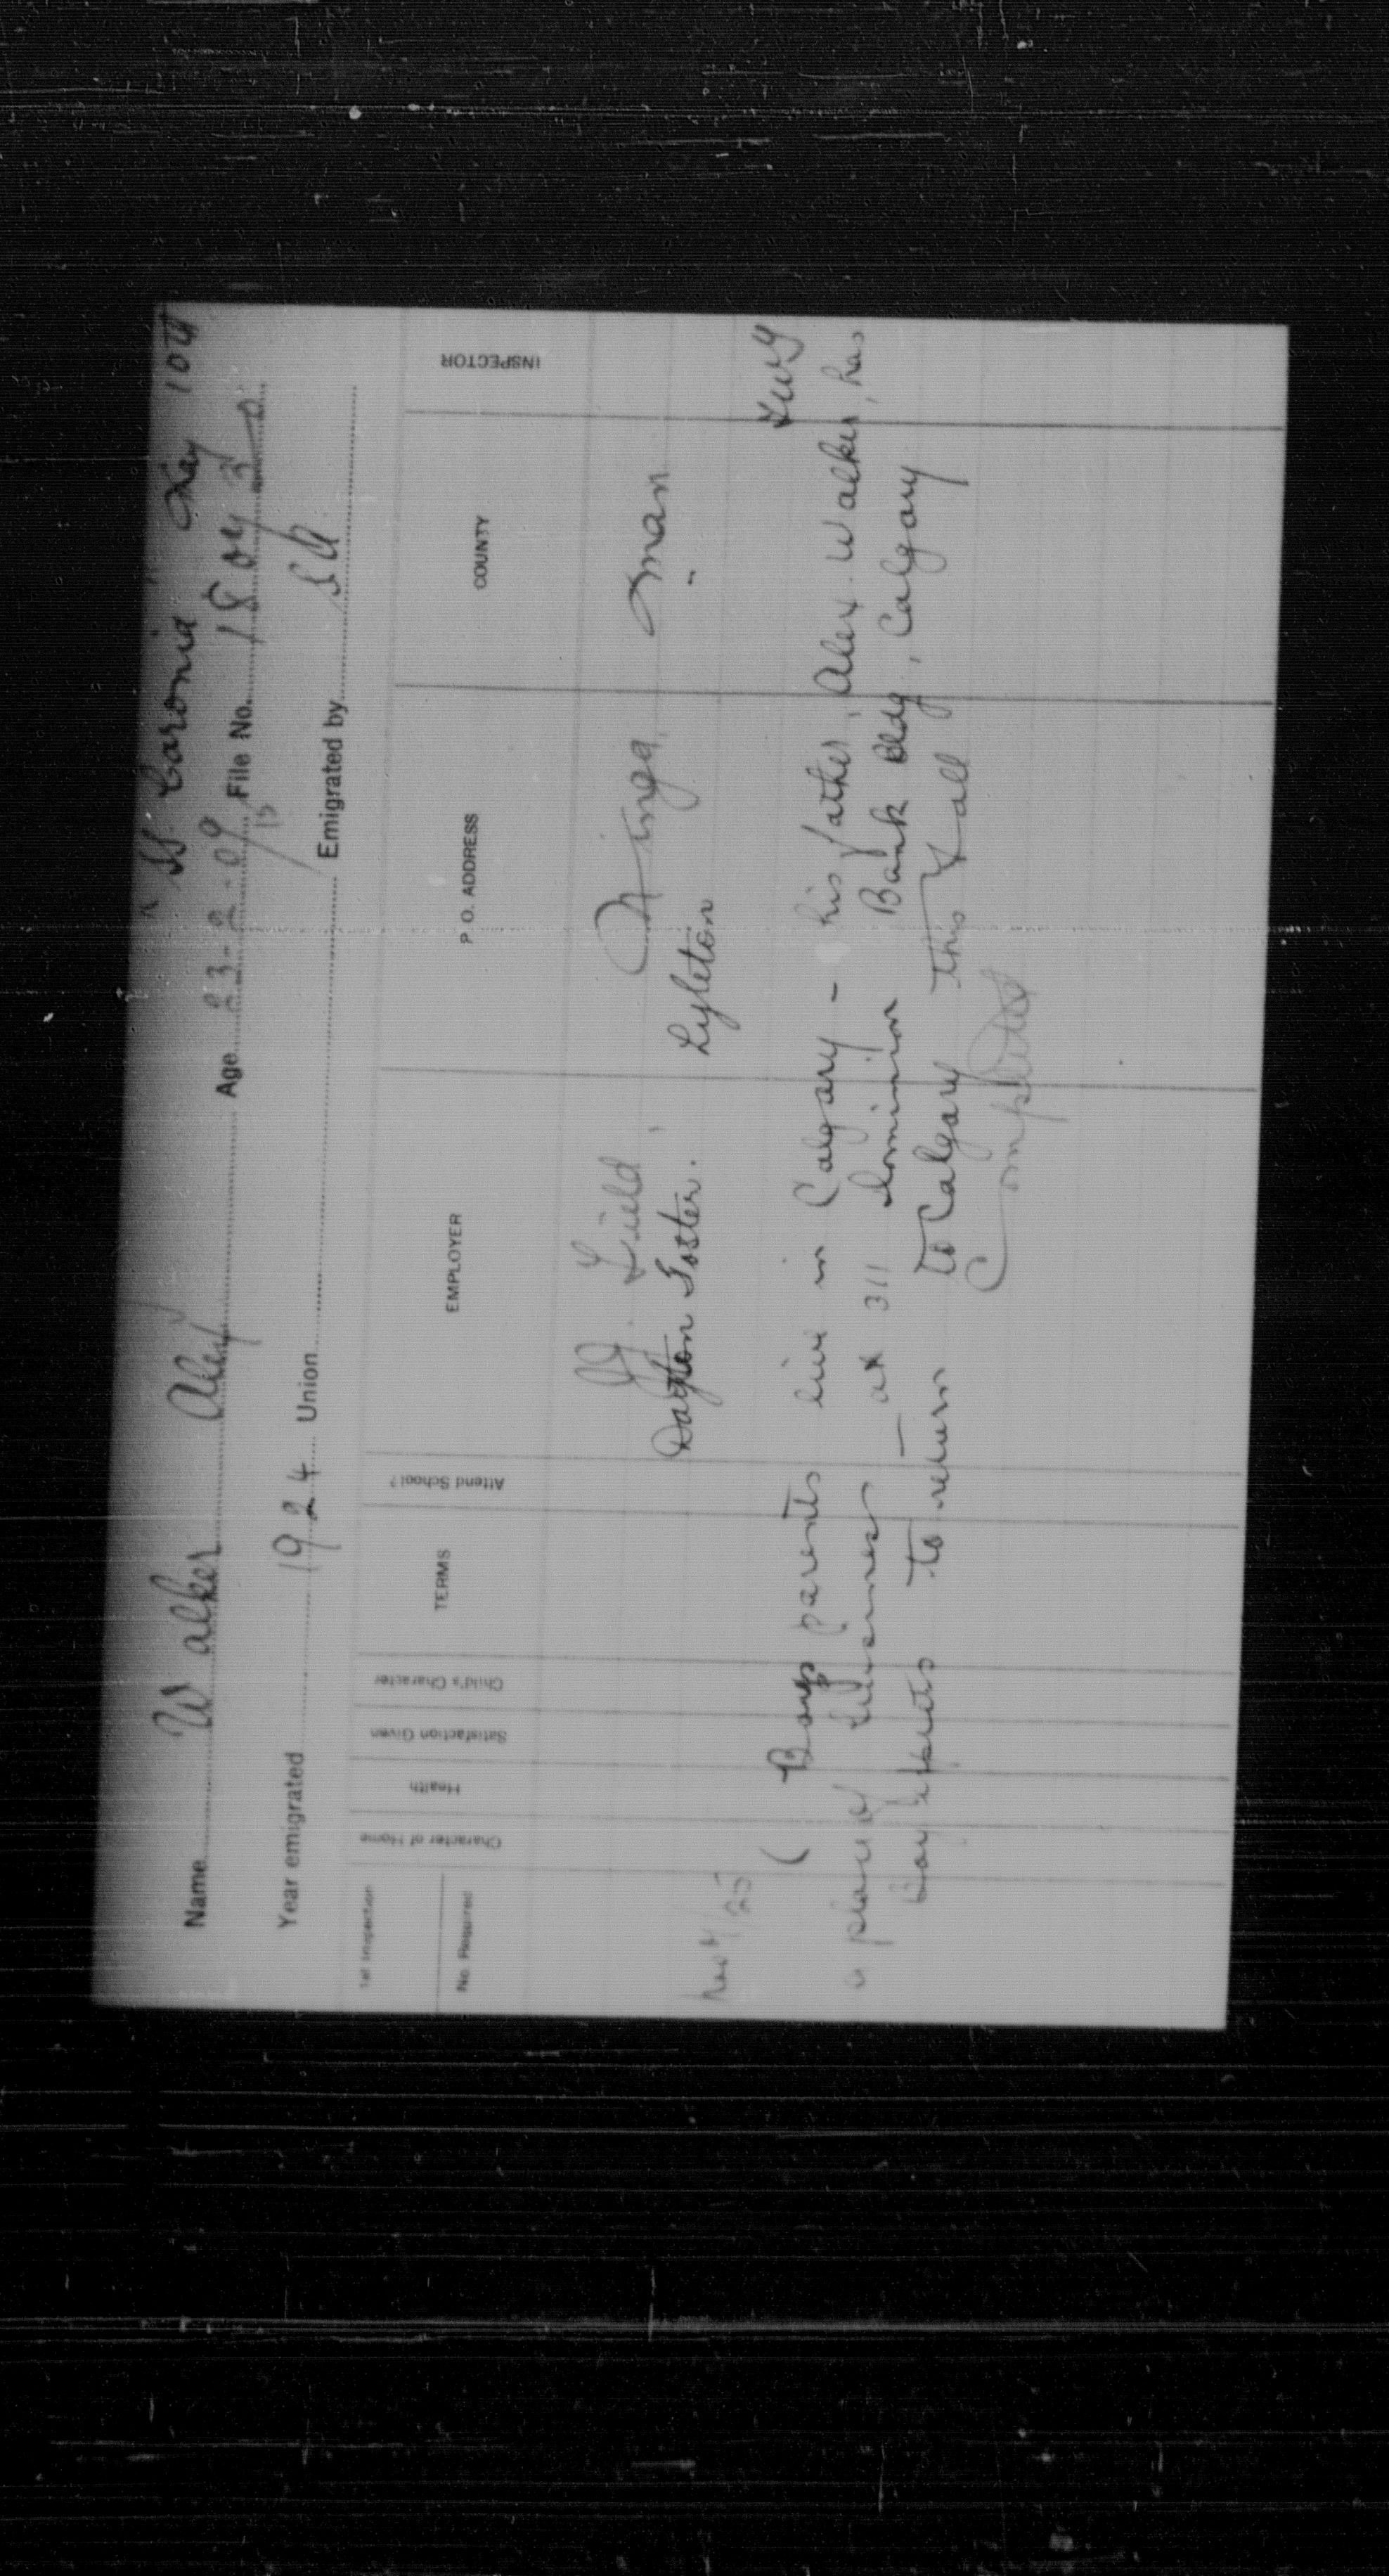 "SS. Caronia" May 10th
Name Walker Alex Age 23-2-09 File No. 18043
15
Year emigrated 1924 Union Emigrated by S A
1st Inspection
No. Required Character of Home Health Satisfaction Given Child's Character TERMS Attend School? EMPLOYER P. O. ADDRESS COUNTY INSPECTOR
Field Ninga, Man
Dayton Foster. Lyleton "
/25
( Boys parents live in Calgary - his father, Alex. Walker, has
a place of business - at 311 Dominion Bank Bldg, Calgary
Boy expects to return to Calgary this Fall
Completed